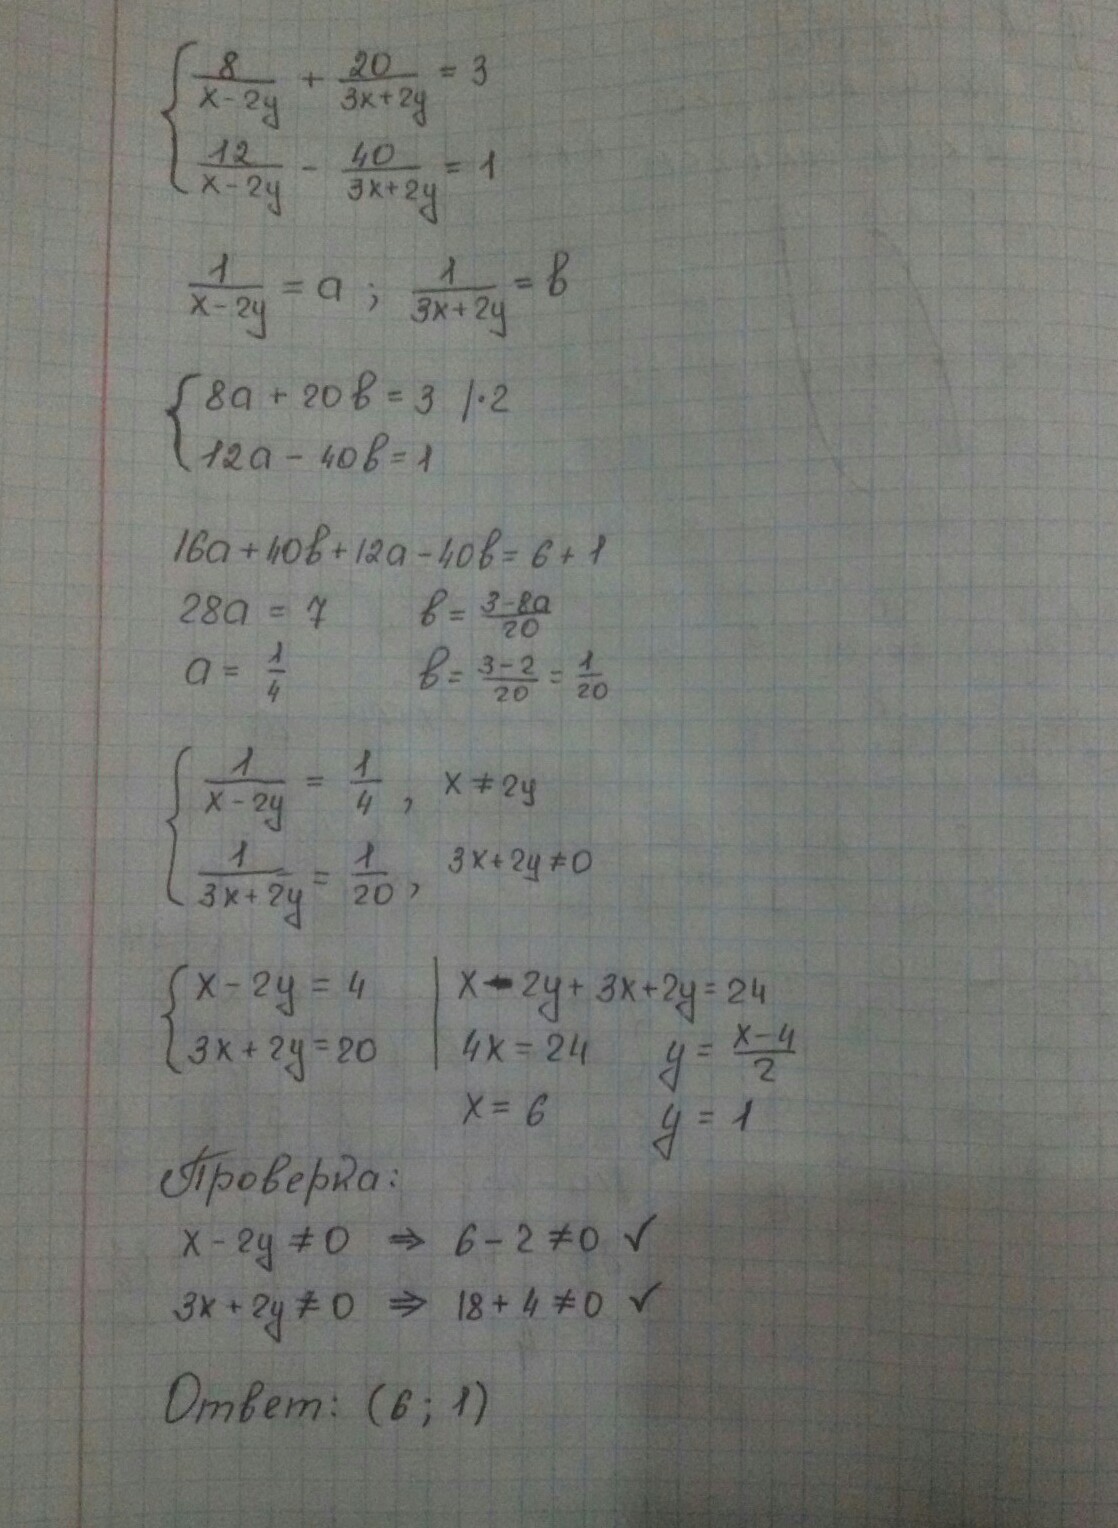 { 8/(x-2y) + 20/(3x+2y) = 3
12/(x-2y) - 40/(3x+2y) = 1
1/(x-2y) = a ; 1/(3x+2y) = в
{ 8a + 20в = 3 /·2
12a - 40в = 1
16a + 40в + 12a - 40в = 6 + 1
28a = 7 в = (3-8a)/20
a = 1/4 в = (3-2)/20 = 1/20
{ 1/(x-2y) = 1/4 , x ≠ 2y
1/(3x+2y) = 1/20 , 3x+2y ≠ 0
{ x - 2y = 4 | x - 2y + 3x + 2y = 24
3x + 2y = 20 | 4x = 24 y = (x-4)/2
x = 6 y = 1
Проверка:
x - 2y ≠ 0 ⇒ 6 - 2 ≠ 0 ✓
3x + 2y ≠ 0 ⇒ 18 + 4 ≠ 0 ✓
Ответ: (6 ; 1)